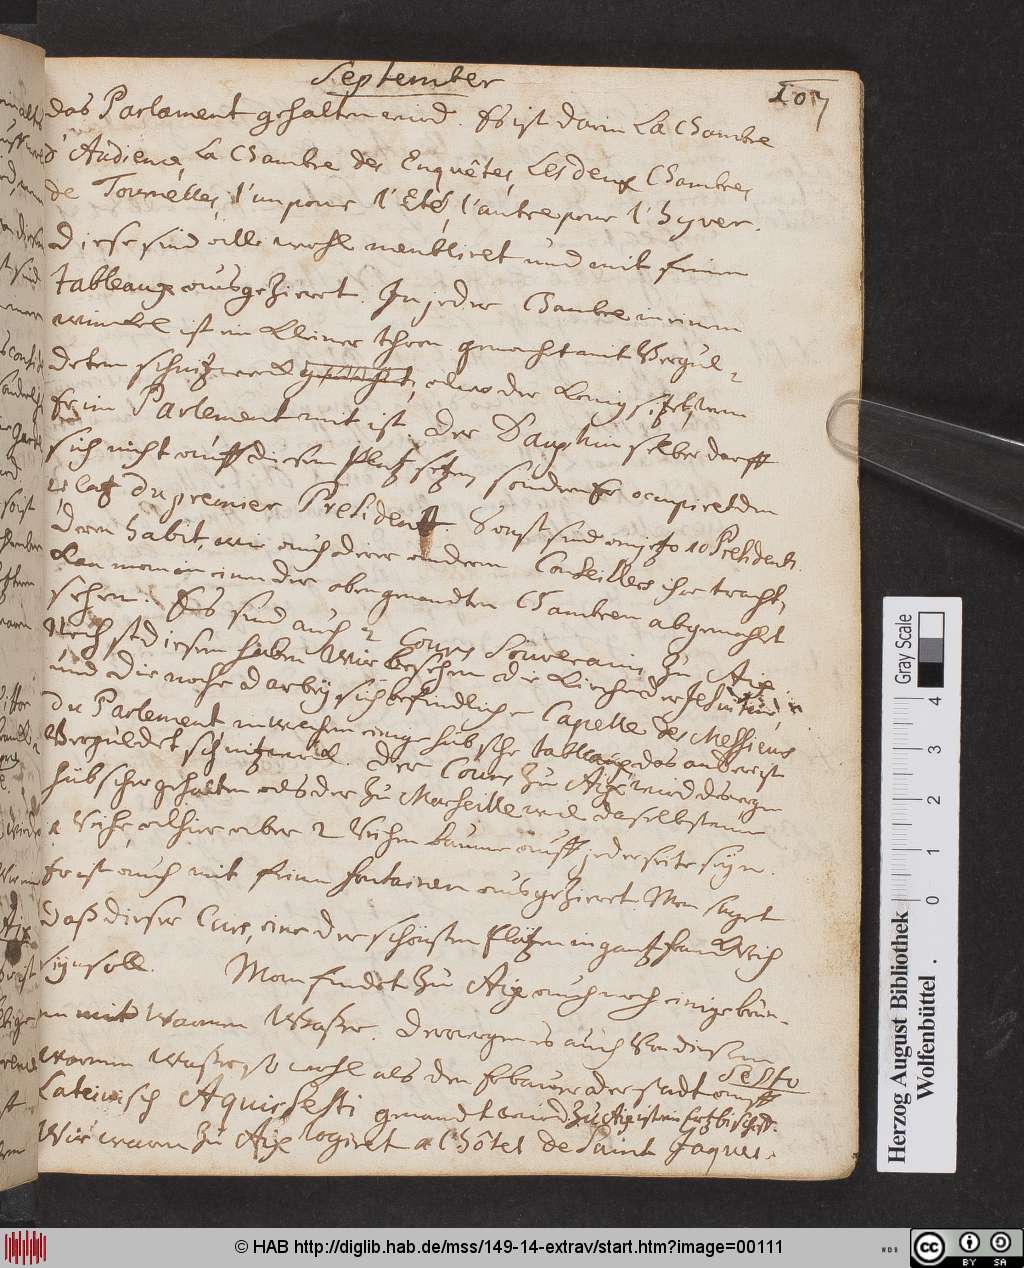 September
107
das Parlament gehalten wird. Es ist darin La Chambre
d'Audience, La Chambre des Enquêtes, Les deux Chambres
de Tournelles, l'un pour l'Eté, l'autre pour l'Hyver.
diese sind alle wohl meubliret und mit feinen
tableaux ausgezieret. In jeder Chambre in einem
winckel ist ein kleiner thron gemacht mit Vergül-
detem schnitzwerck, alwo der König sitzet, wen
Er im Parlement mit ist. Der Dauphin selber darff
sich nicht auff diesen Platz setzen, sondern Er occupiret den
Platz du premier President. Sonst sind 10 Presidents.
deren habit, wie auch derer anderen Conseillers ihre tracht,
kan man in einem der obengenandten Chambren abgemahlt
sehen. Es sind auch 2 Cours Souverains zu Aix.
Nechst diesem haben wir besehen die Kirche der Jesuiten,
und die nache darbey sich befindliche Capelle des Messieurs
du Parlement, in welchen einge hübsche tableaux das ander ist
Verguldet schnitzwerck. Der Cours zu Aix wird deswegen
hübscher gehalten als der zu Marseille weil daselbst nur
1 Reihe, alhier aber 2 Reihen bäume auff jeder seite seyn.
Er ist auch mit feinen fontainen ausgezieret. Man saget
daß dieser Curs, eine der schönsten Plätzen in gantz Franckreich
seyn soll. Man findet zu Aix auch noch einige brün-
en mit warmen Wasser. Derwegen es auch Von diesem
warmen Wasser, so wohl als den Erbauer der stadt Sextio auff
Lateinisch Aquis Sexti genandt wird zu Aix ist ein Ertzbischoff.
Wir waren zu Aix logiret a l'hôtel de Saint Jaques.
Herzog August Bibliothek
Wolfenbüttel
Gray Scale
0 1 2 3 4
© HAB http://diglib.hab.de/mss/149-14-extrav/start.htm?image=00111
cc BY SA